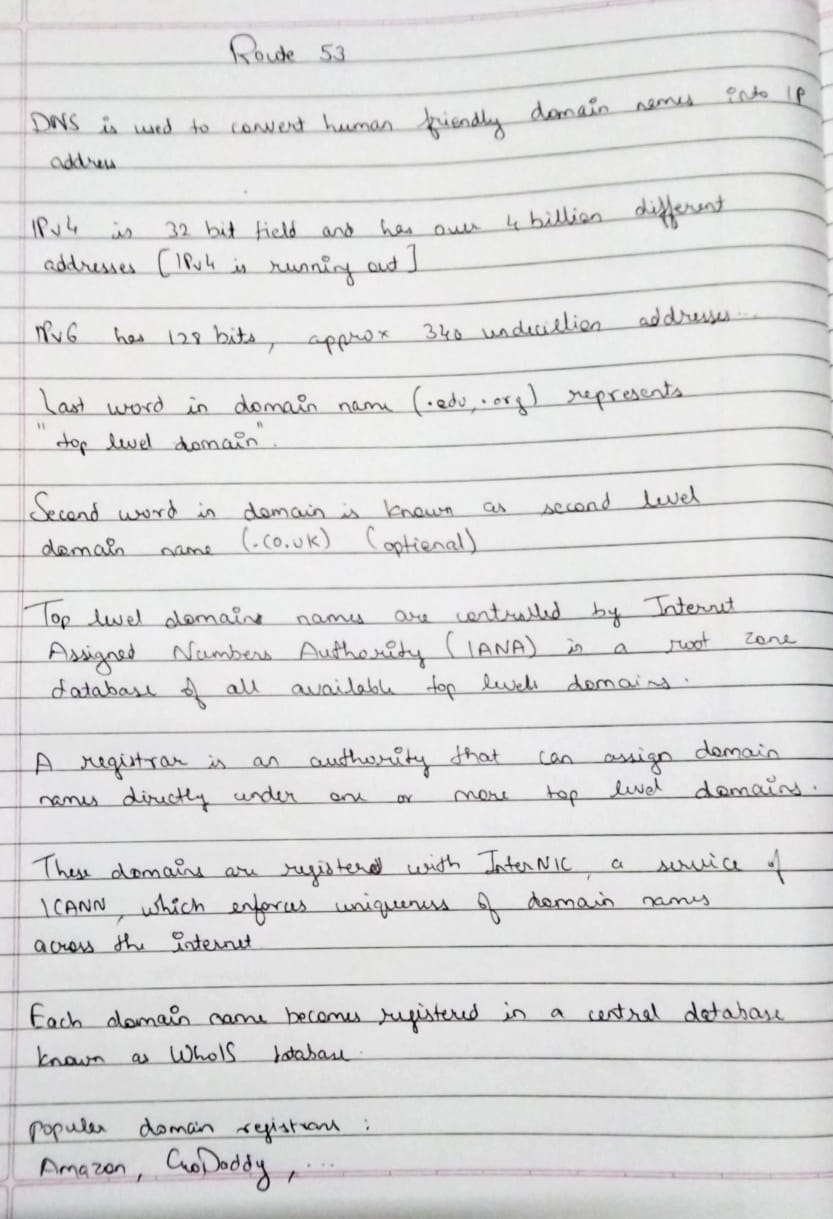 Route 53
DNS is used to convert human friendly domain names into IP
address
IPv4 is 32 bit field and has over 4 billion different
addresses [IPv4 is running out]
IPv6 has 128 bits, approx 340 undecillion addresses...
Last word in domain name (.edu, .org) represents
"top level domain".
Second word in domain is known as second level
domain name (.co.uk) (optional)
Top level domains names are controlled by Internet
Assigned Numbers Authority (IANA) in a root zone
database of all available top levels domains.
A registrar is an authority that can assign domain
names directly under one or more top level domains.
These domains are registered with InterNIC, a service of
ICANN, which enforces uniqueness of domain names
across the internet
Each domain name becomes registered in a central database
known as WhoIS database.
popular domain registrars :
Amazon, GoDaddy, ...